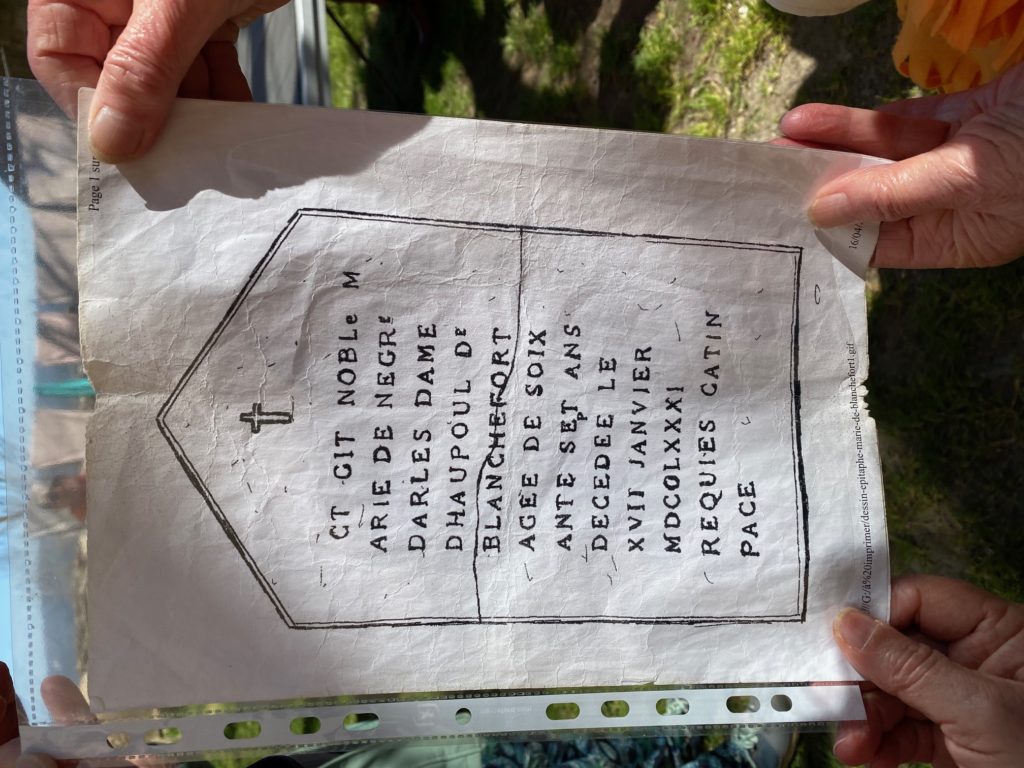 Page 1 sur
CT GIT NOBLe M
ARIE DE NEGRe
DARLES DAME
DHAUPOUL De
BLANCHEFORT
AGEE DE SOIX
ANTE SEpT ANS
DECEDEE LE
XVII JANVIER
MDCOLXXXI
REQUIES CATIN
PACE
G:/à%20imprimer/dessin-epitaphe-marie-de-blanchefort1.gif 16/04/